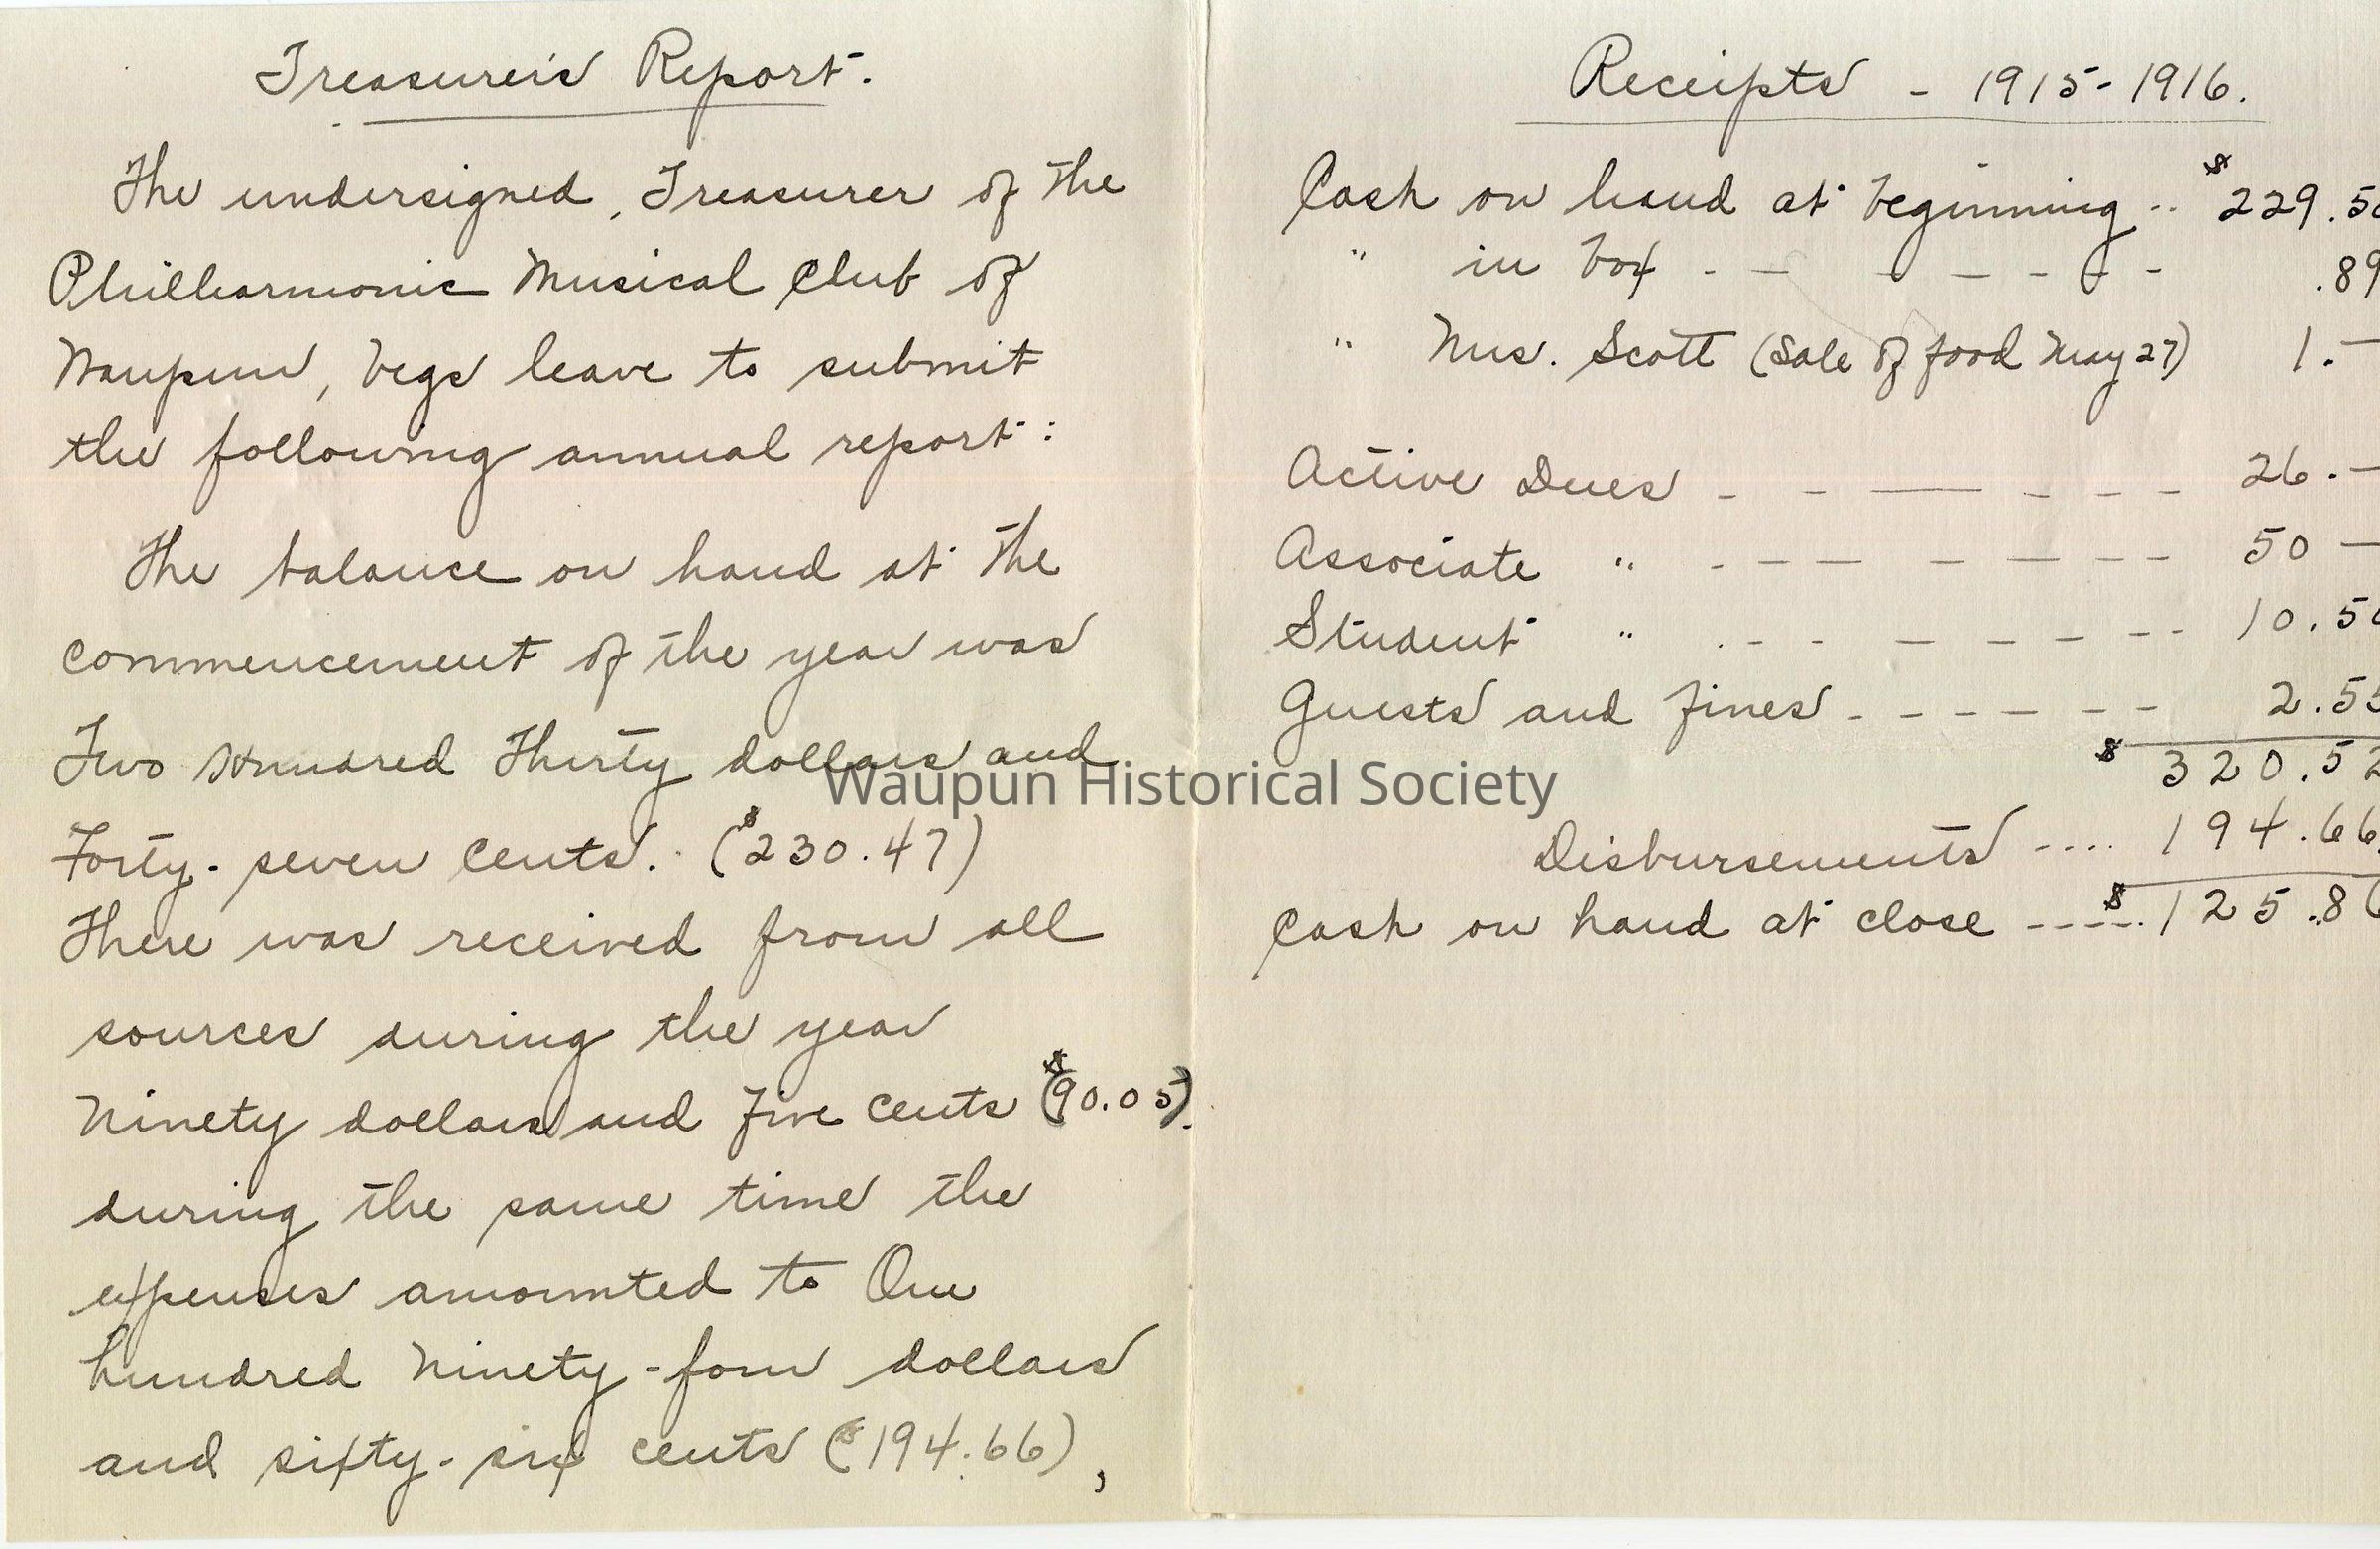 Treasurer's Report.
The undersigned, Treasurer of the
Philharmonic Musical Club of
Waupun, begs leave to submit
the following annual report:
The balance on hand at the
commencement of the year was
Two Hundred Thirty dollars and
Forty-seven cents. ($230.47)
There was received from all
sources during the year
Ninety dollars and Five cents ($90.05).
during the same time the
expenses amounted to One
hundred Ninety-four dollars
and sixty-six cents ($194.66),
Receipts - 1915-1916.
Cash on hand at beginning .. $229.58
" in box - - - - - - - .89
" Mrs. Scott (Sale of food May 27) 1.—
Active Dues - - — - - - 26.—
Associate " - - - - - - - 50 —
Student " - - - - - - - - 10.50
Guests and Fines - - - - - - 2.55
$320.52
Disbursements .... 194.66
Cash on hand at close ----- $125.86
Waupun Historical Society